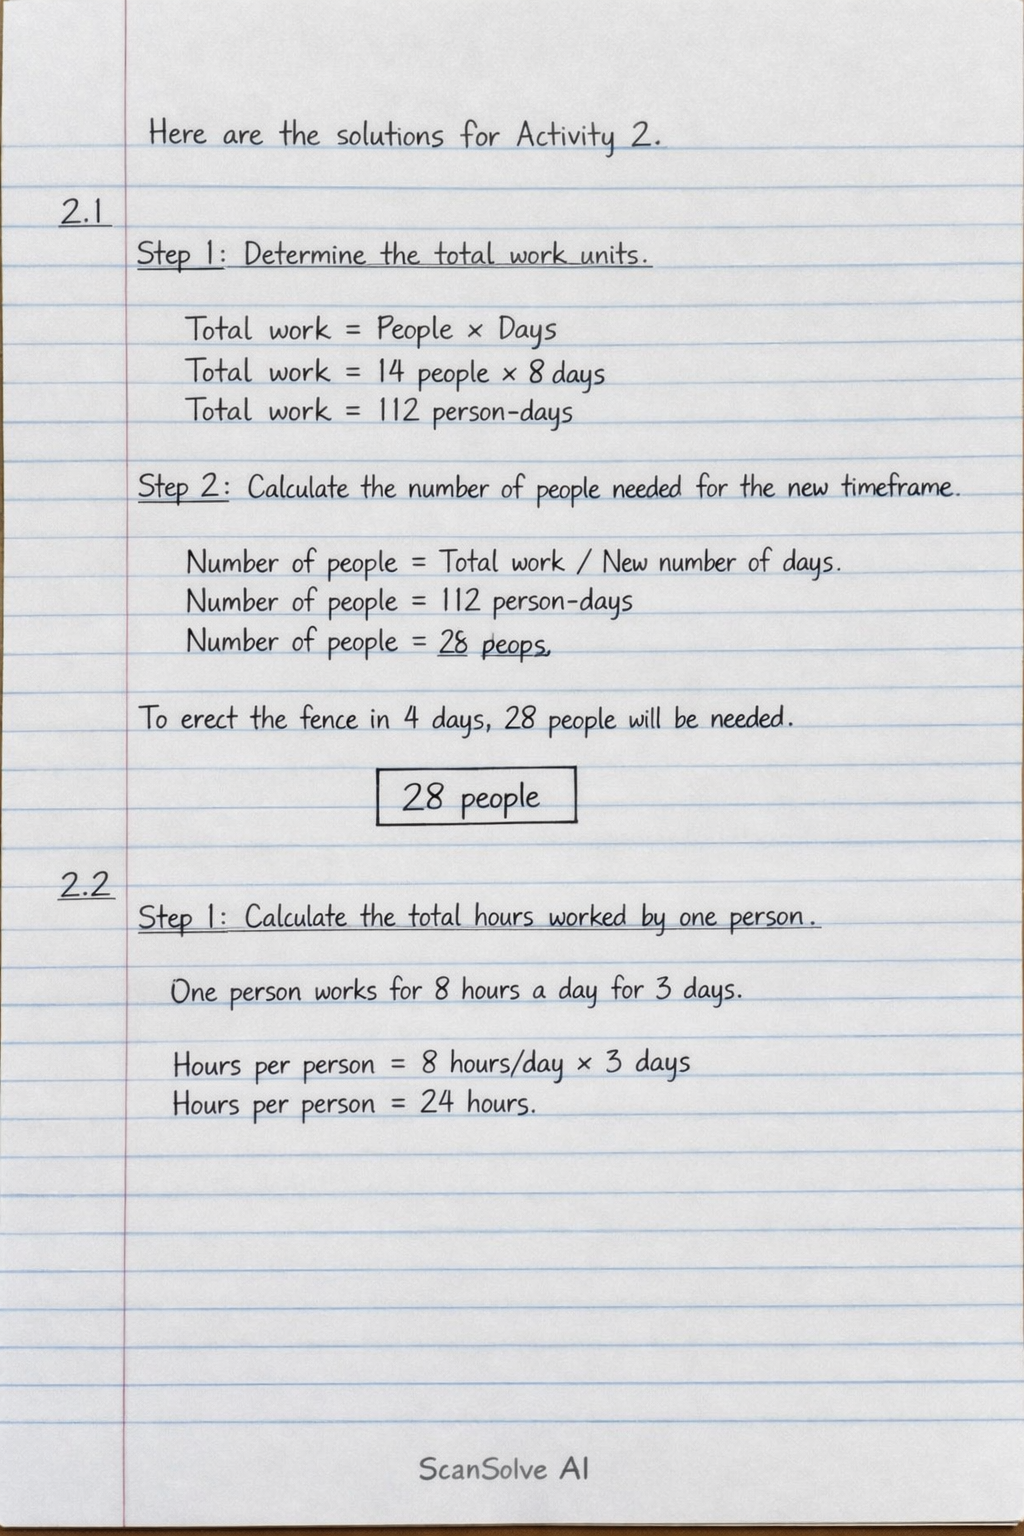 Here are the solutions for Activity 2.
2.1
Step 1: Determine the total work units.
Total work = People × Days
Total work = 14 people × 8 days
Total work = 112 person-days
Step 2: Calculate the number of people needed for the new timeframe.
Number of people = Total work / New number of days.
Number of people = 112 person-days
Number of people = 28 peops,
To erect the fence in 4 days, 28 people will be needed.
28 people
2.2
Step 1: Calculate the total hours worked by one person.
One person works for 8 hours a day for 3 days.
Hours per person = 8 hours/day × 3 days
Hours per person = 24 hours.
ScanSolve AI